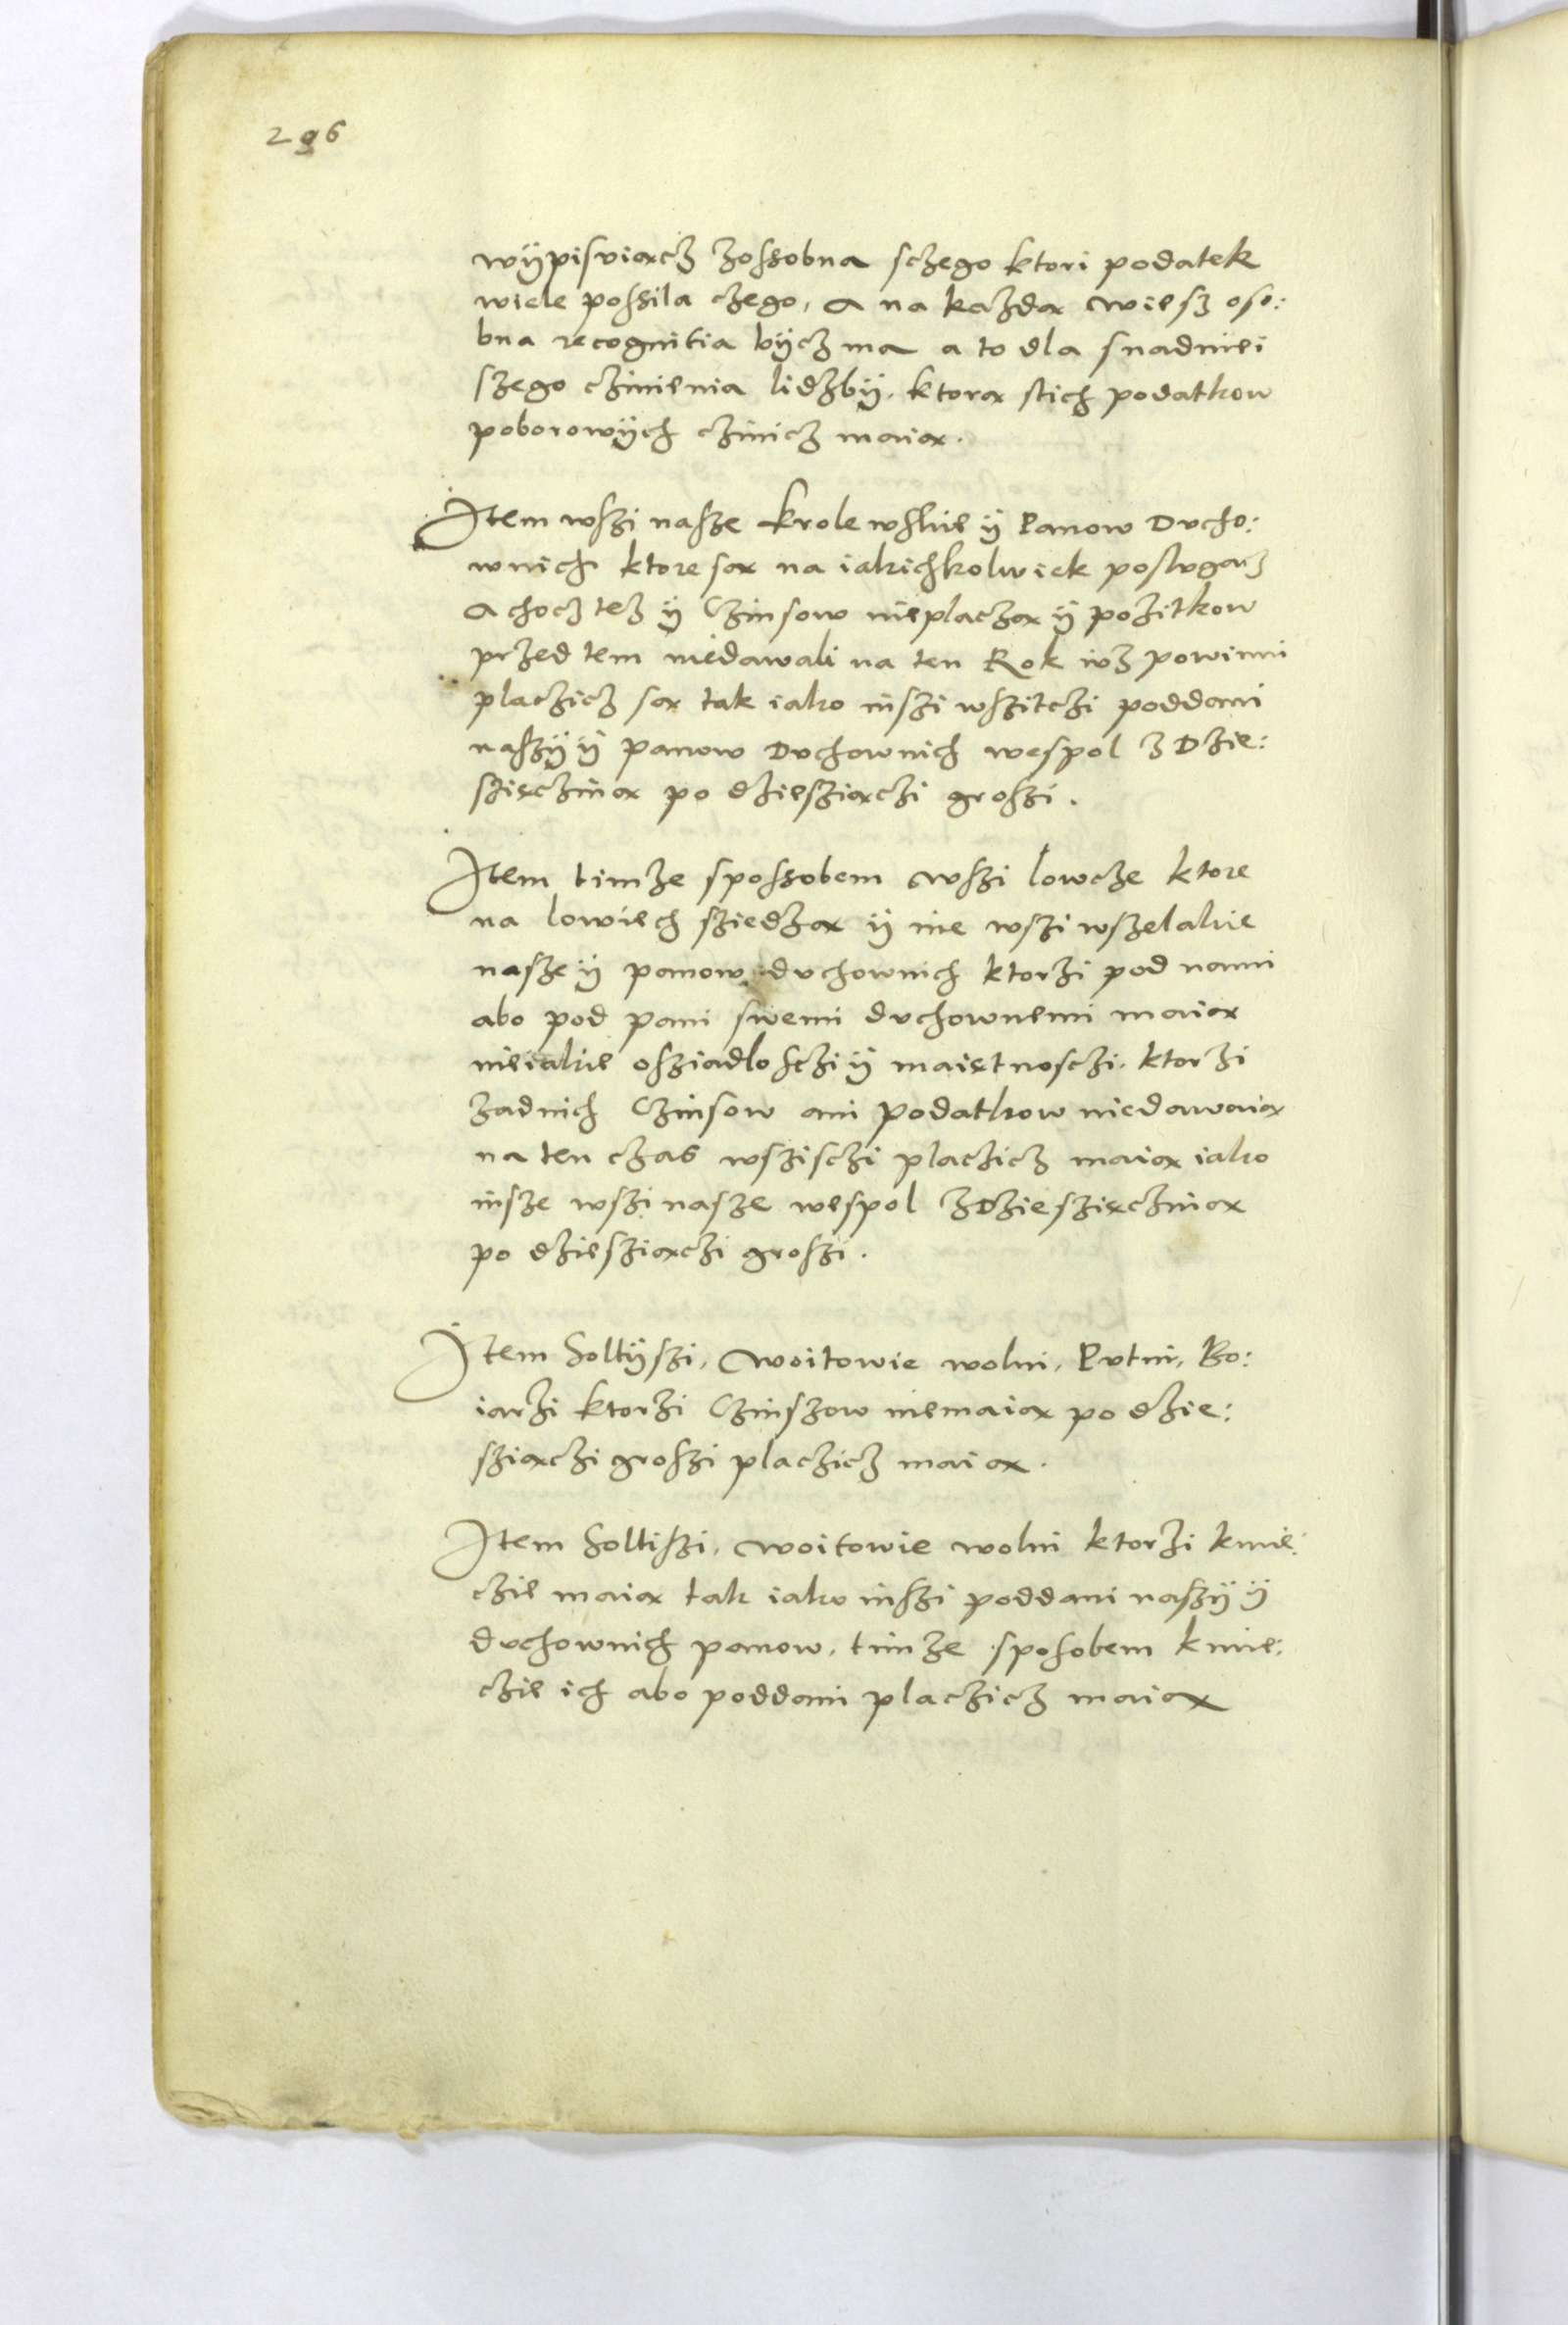 296
wÿpisuiącz zossobna sczego ktori podatek
wiele possila czego, A na każdą wiesz oso:
bna recognitia bÿcz ma a to dla snadniei
szego czinienia lidzbÿ. ktorą stich podatkow
poborowÿch czinicz maią.
Item wszi nasze krolewskie ÿ Panow Ducho:
wnich ktore są na iakichkolwiek poslugacz
A chocz tez ÿ Czinsow nieplaczą ÿ pozitkow
przed tem niedawali na ten Rok isz powinni
placzicz są tak iako inszi wszitczi poddani
naszÿ ÿ panow Duchownich wespol z Dzie:
sziecziną po dziesziączi groszi.
Item timze spossobem wszi lowcze ktore
na lowiech sziedzą ÿ ine wszi wszelakie
nasze ÿ panow duchownich ktorzi pod nami
abo pod pani swemi duchownemi maią
nieiakie osziadlosczi ÿ maietnosczi. ktorzi
zadnich Czinsow ani podatkow niedawaią
na ten czas wszisczi placzicz maią iako
insze wszi nasze wespol zDzieszięcziną
po dziesziączi groszi.
Item Soltÿszi, Woitowie wolni, Putni, Bo:
iarzi ktorzi Czinszow niemaią po dzie:
sziączi groszi placzicz maią.
Item Soltiszi, Woitowie wolni ktorzi kmie:
czie maią tak iako inszi poddani naszÿ ÿ
duchownich panow, timze sposobem kmie:
czie ich abo poddani placzicz maią